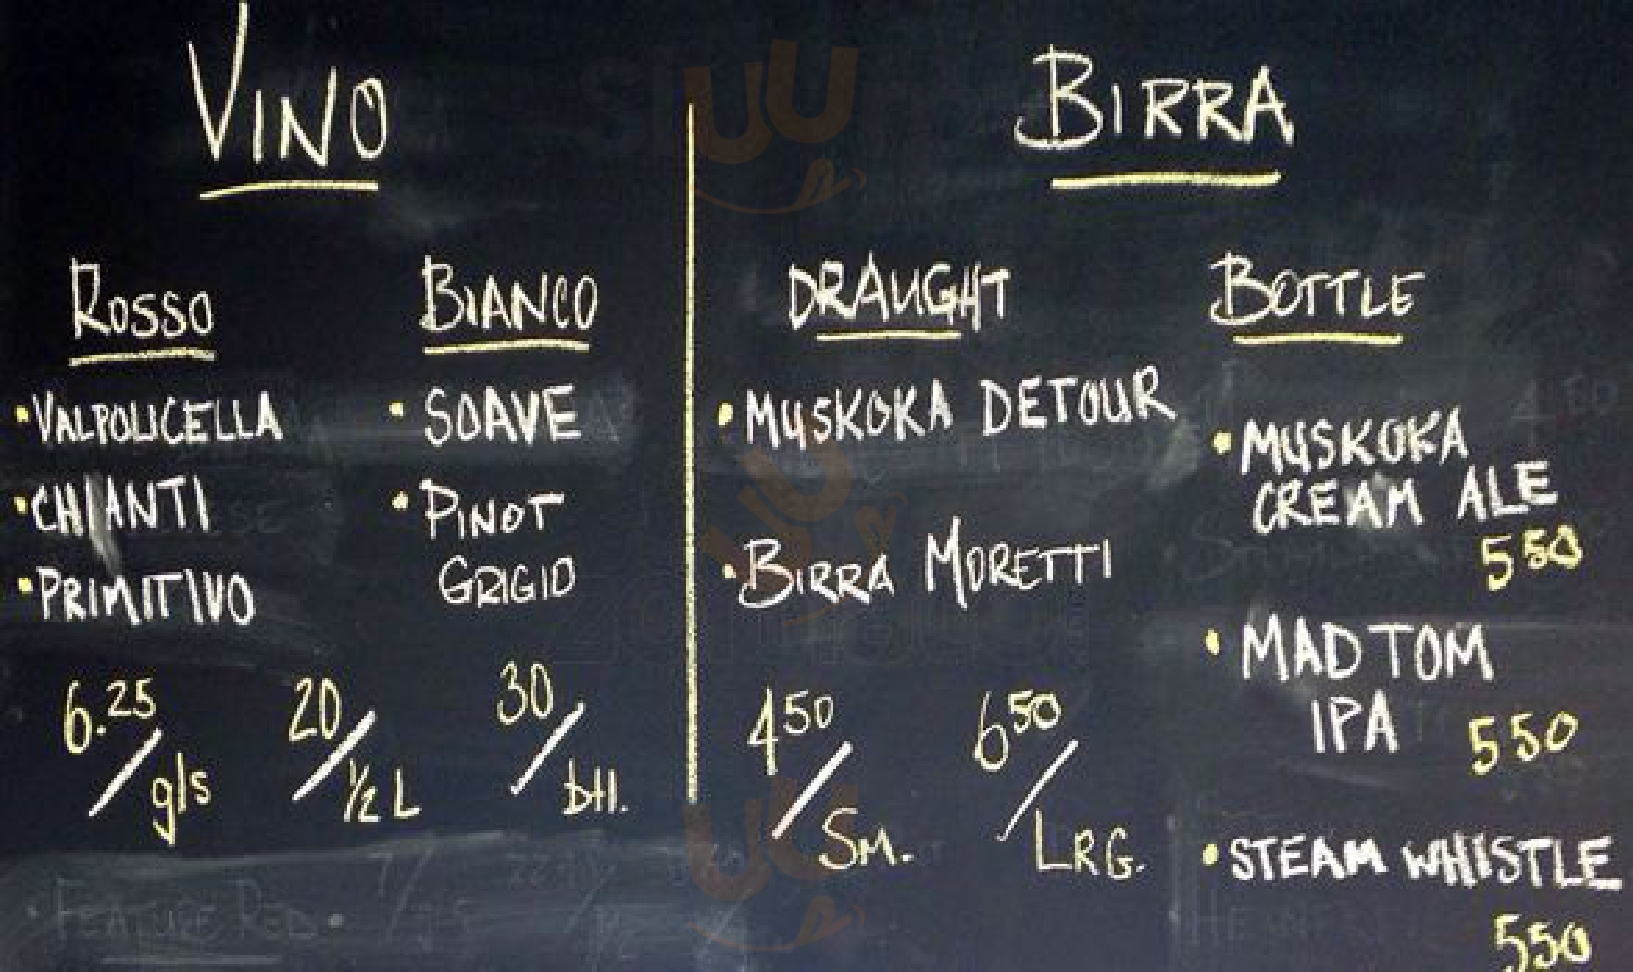 VINO
ROSSO
• VALPOLICELLA
• CHIANTI
• PRIMITIVO
BIANCO
• SOAVE
• PINOT
GRIGIO
6.25/gls
20/½ L
30/btl.
BIRRA
DRAUGHT
• MUSKOKA DETOUR
• BIRRA MORETTI
4 50/SM.
6 50/LRG.
BOTTLE
• MUSKOKA
CREAM ALE
5 50
• MAD TOM
IPA 5 50
• STEAM WHISTLE
5 50
• FEATURE RED •